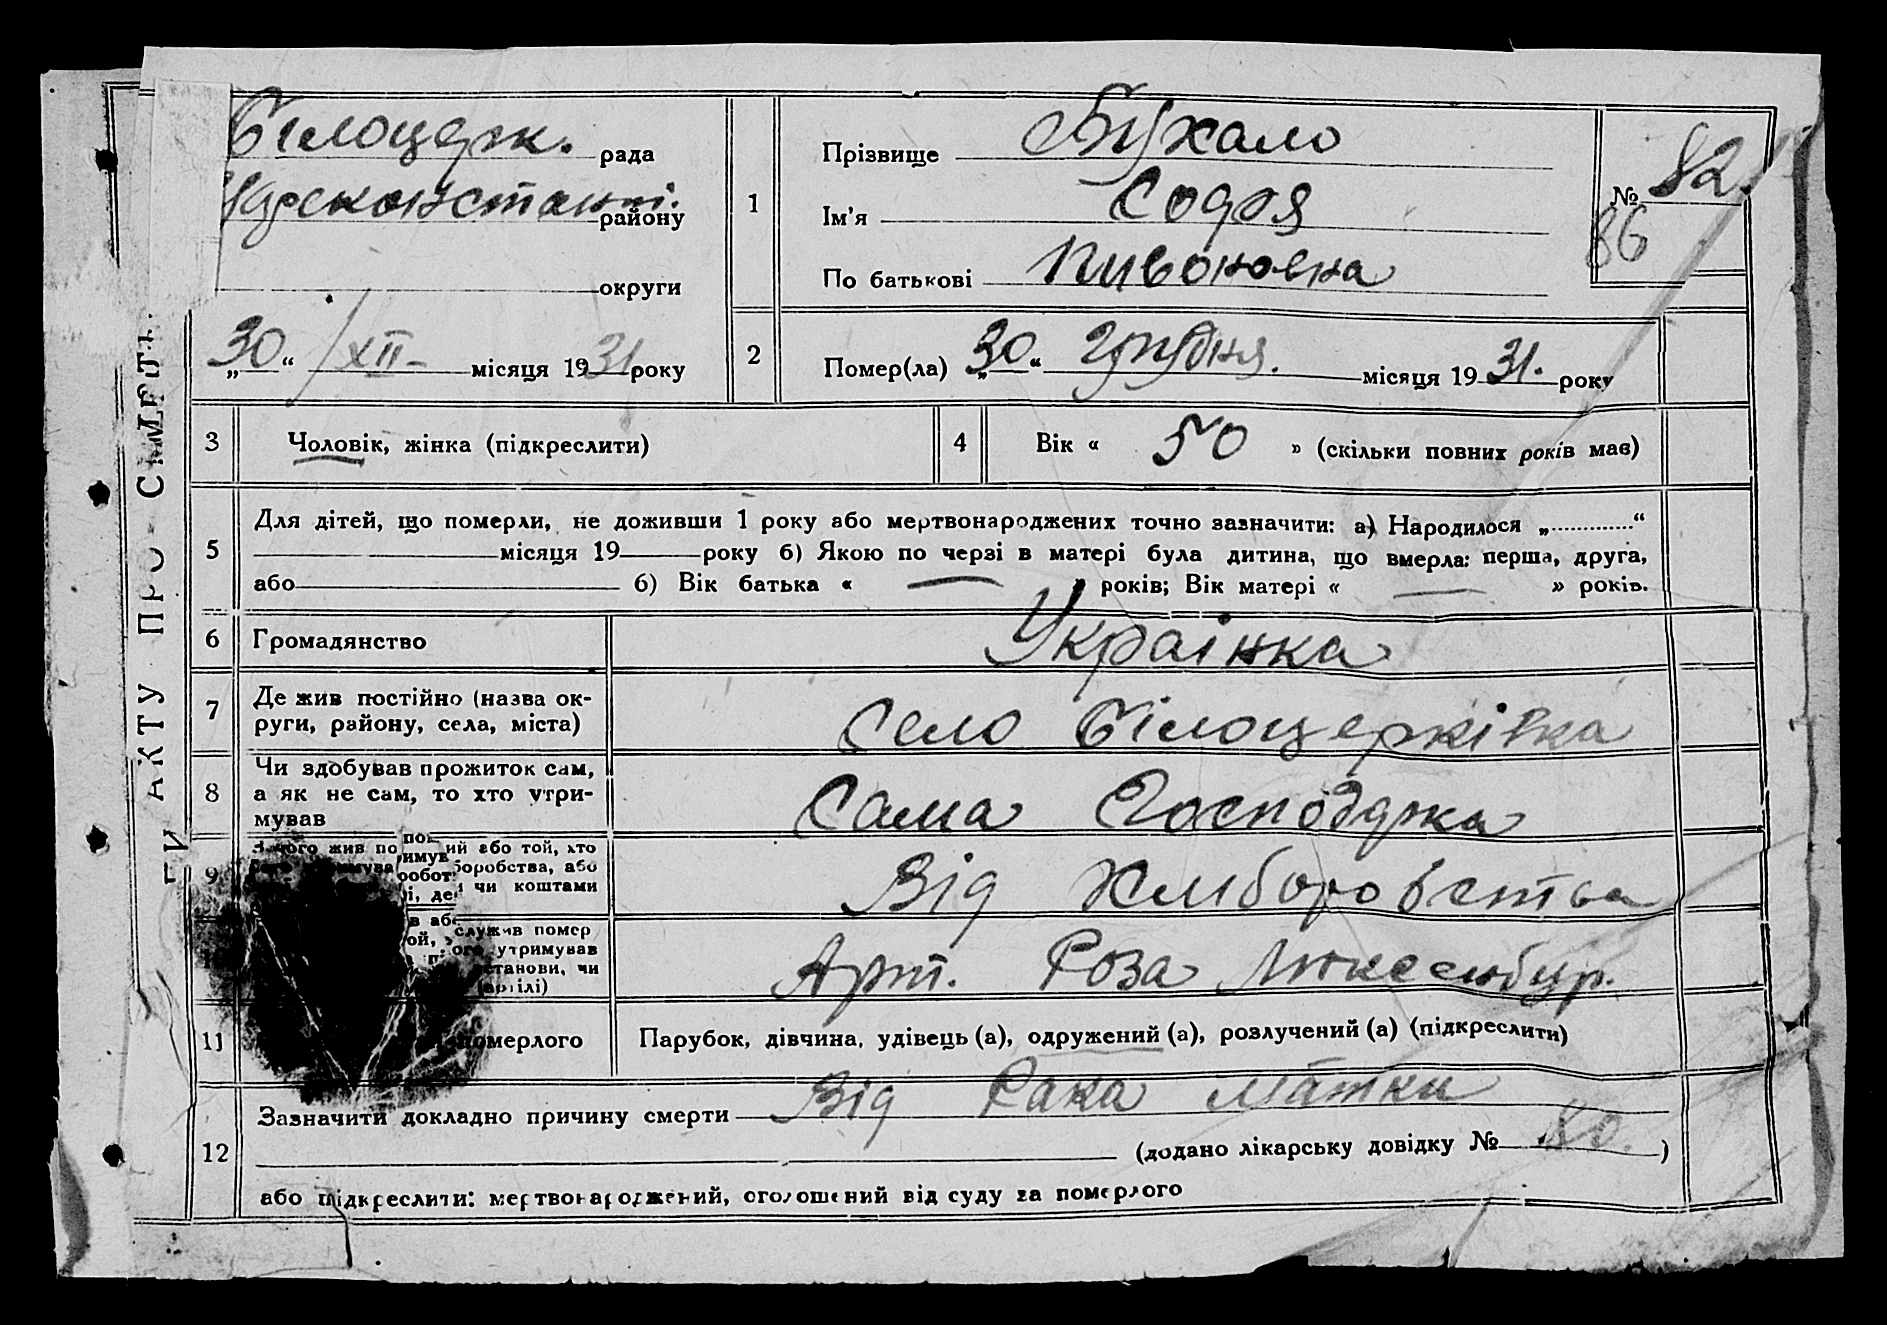 Білоцерк. рада
Царсконстант. району
округи
„30“ /XII- місяця 1931 року
1
Прізвище Бухало
Ім'я Софія
По батькові Пивоновна
№ 82.
86
2
Помер(ла) „30“ грудня. місяця 1931. року
ГИ АКТУ ПРО СМЕРТЬ
3 Чоловік, жінка (підкреслити)
4 Вік « 50 » (скільки повних років мав)
5
Для дітей, що померли, не доживши 1 року або мертвонароджених точно зазначити: а) Народилося „.............“
місяця 19 року б) Якою по черзі в матері була дитина, що вмерла: перша, друга,
або б) Вік батька « — » років; Вік матері « — » років.
6 Громадянство Українка
7 Де жив постійно (назва ок-
руги, району, села, міста)
Село Білоцерківка
8 Чи здобував прожиток сам,
а як не сам, то хто утри-
мував
Сама Господарка
9
жив по ий або той, хто
боробства, або
чи коштами
Від Хліборобства
служив помер
утримував
станови, чи
Арт. Роза Люксембур.
11 померлого Парубок, дівчина, удівець (а), одружений (а), розлучений (а) (підкреслити)
12
Зазначити докладно причину смерти Від Рака Матки
(додано лікарську довідку № )
або підкреслити: мертвонароджений, оголошений від суду за померлого